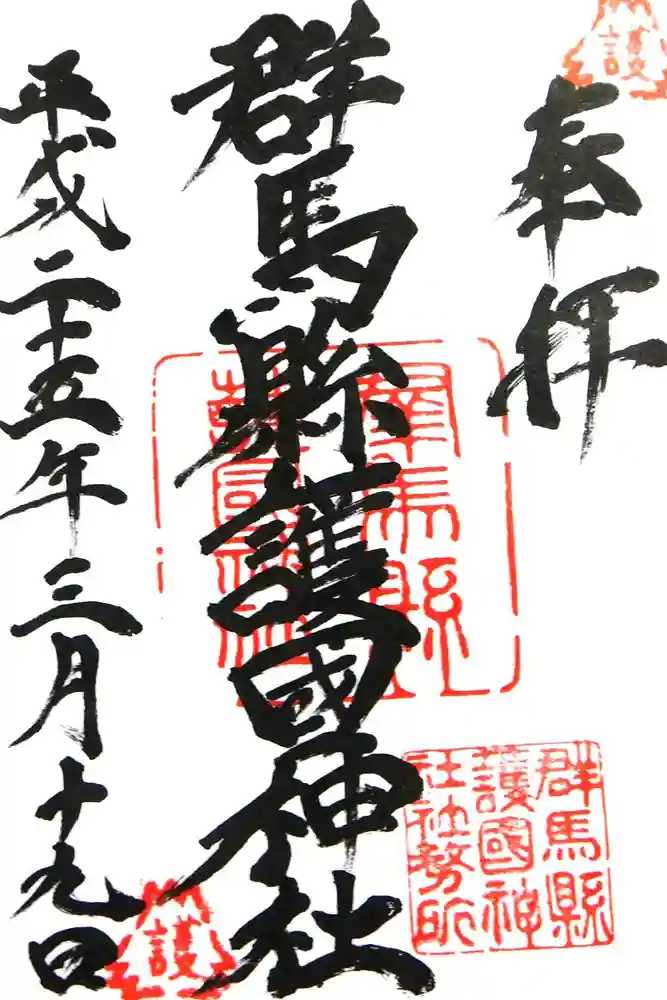 護
奉拝
群馬縣護國神社
平成二十五年三月十九日
群馬縣
護國神社
群馬縣
護國神
社社務所
護